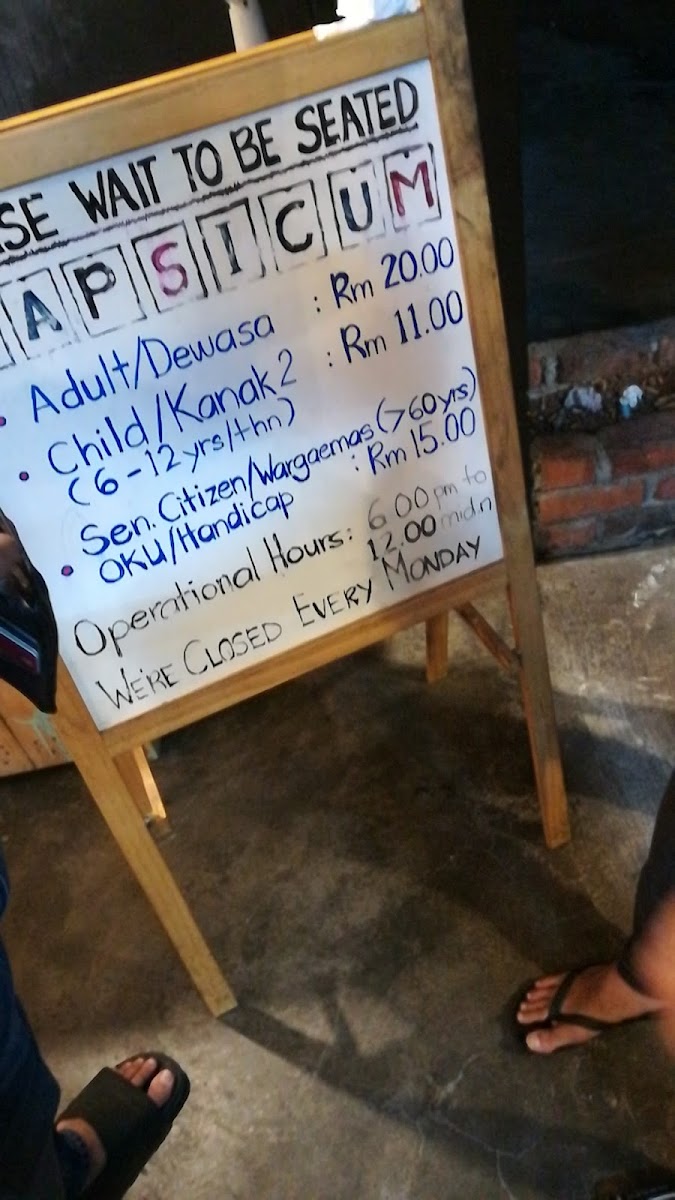 SE WAIT TO BE SEATED
APSICUM
• Adult/Dewasa : Rm 20.00
• Child/Kanak2 : Rm 11.00
(6-12yrs/thn)
Sen. Citizen/Wargaemas (>60yrs)
• OKU/Handicap : Rm 15.00
Operational Hours: 6.00 pm to
12.00 mid.n
WE'RE CLOSED EVERY MONDAY